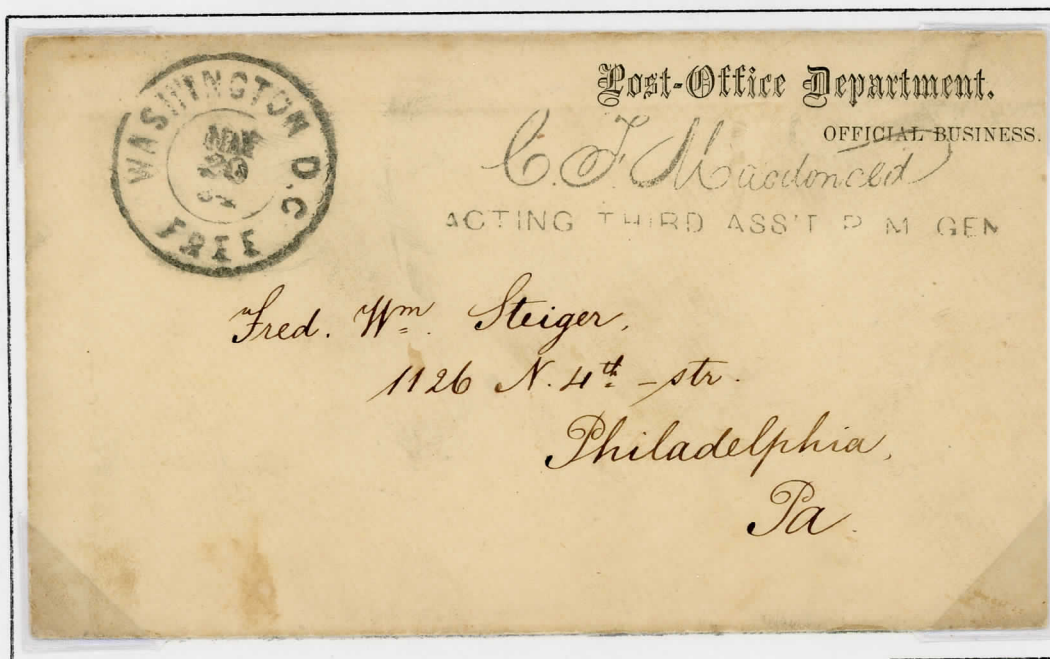 WASHINGTON D.C.
MAY
20
FREE
Post-Office Department.
OFFICIAL BUSINESS.
C. F. Macdonald
ACTING THIRD ASS'T P. M. GEN
Fred. Wm. Steiger,
1126 N. 4th - str.
Philadelphia,
Pa.